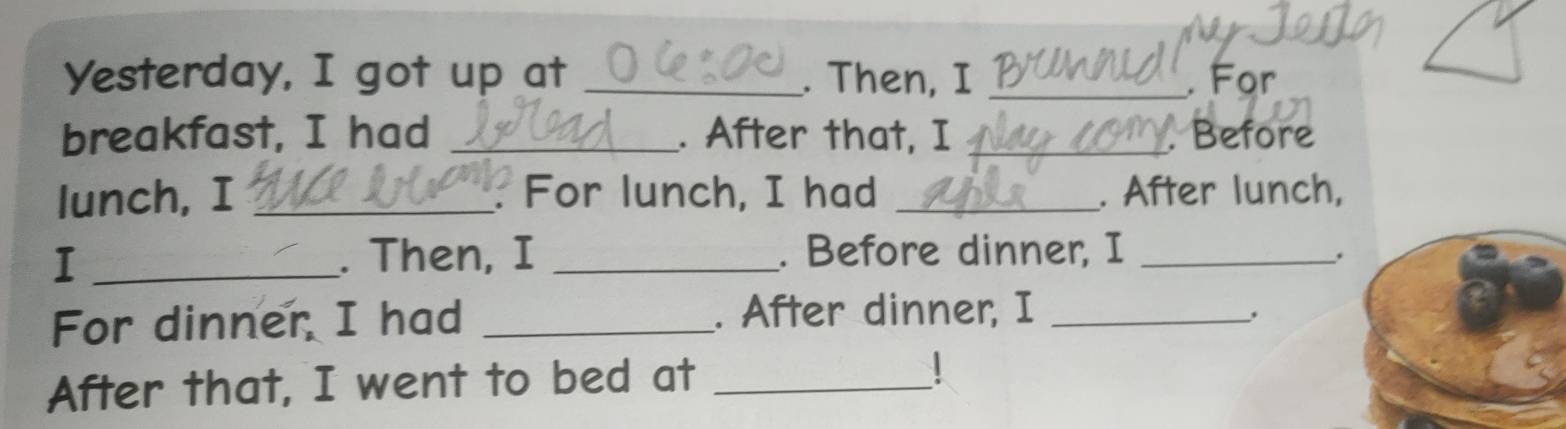 Yesterday, I got up at 06:00. Then, I my. For
breakfast, I had bread. After that, I play. Before
lunch, I. For lunch, I had. After lunch,
I ________. Then, I ________. Before dinner, I ________.
For dinner, I had ________. After dinner, I ________.
After that, I went to bed at ________!